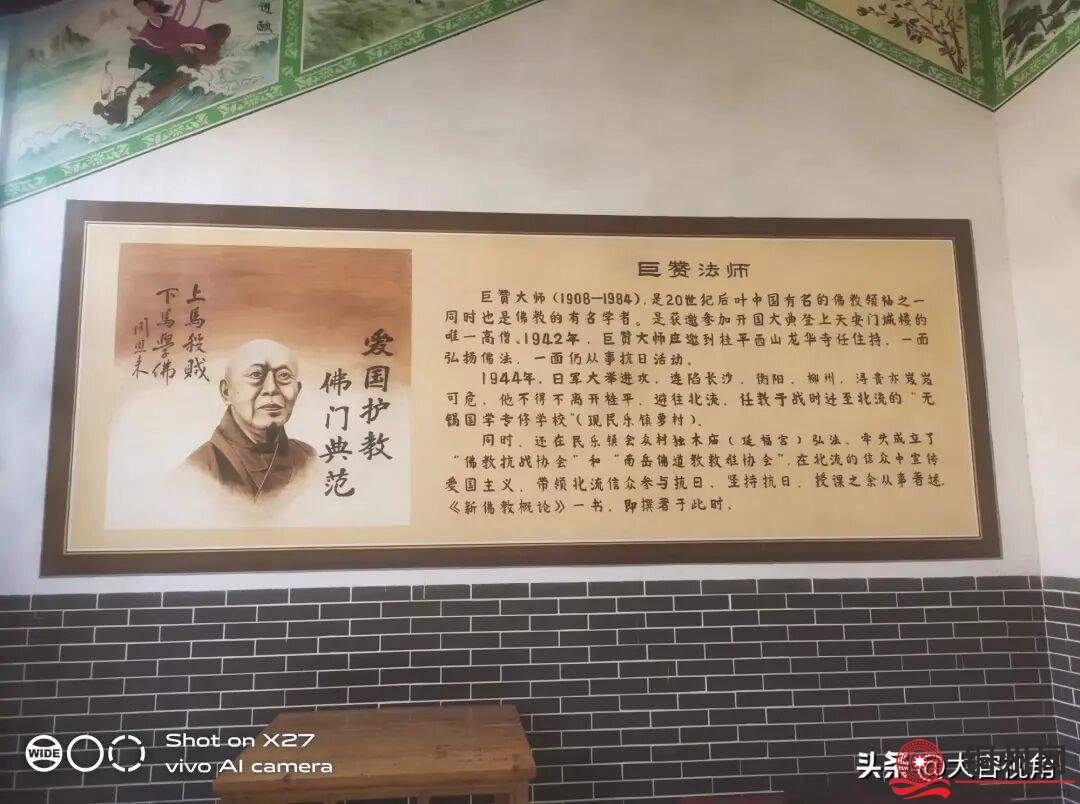 道融
上馬殺賊
下馬學佛
周恩来
爱国护教
佛门典范
巨赞法师
巨赞大师（1908—1984），是20世纪后叶中国有名的佛教领袖之一
同时也是佛教的有名学者。是获邀参加开国大典登上天安门城楼的
唯一高僧。1942年，巨赞大师应邀到桂平西山龙华寺任住持，一面
弘扬佛法，一面仍从事抗日活动。
1944年，日军大举进攻，连陷长沙，衡阳，柳州，浔贵亦岌岌
可危，他不得不离开桂平，避往北流，任教于战时迁至北流的“无
锡国学专修学校”（现民乐镇萝村）。
同时，还在民乐镇会众村独木庙（延福宫）弘法。牵头成立了
“佛教抗战协会”和“南岳佛道教救难协会”，在北流的信众中宣传
爱国主义，带领北流信众参与抗日，坚持抗日，授课之余从事著述，
《新佛教概论》一书，即撰著于此时。
WIDE
Shot on X27
vivo AI camera
头条 @大容视角